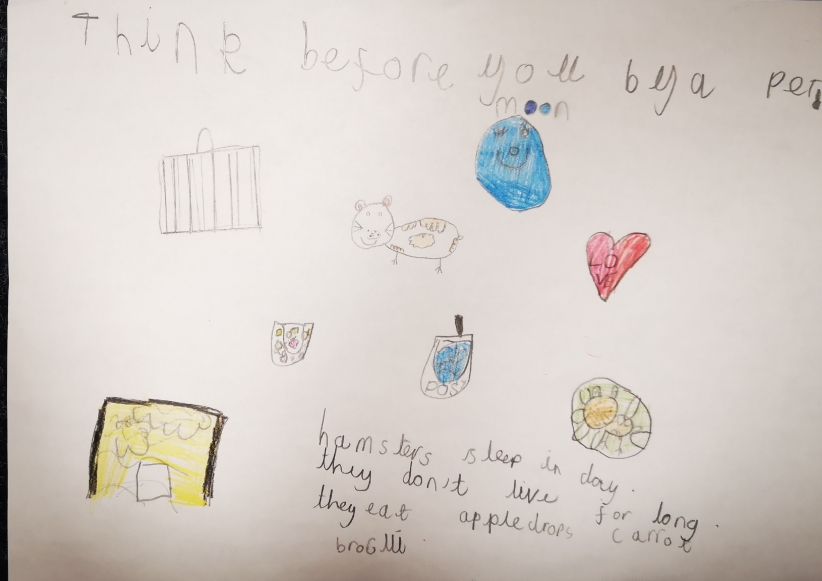 Think before you by a pet.
moon
LO
VE
hamsters sleep in day.
they don't live for long.
they eat appledrops carrot